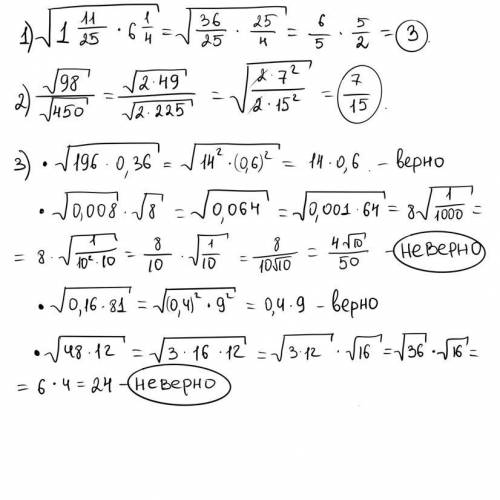 1) √(1 11/25 · 6 1/4) = √(36/25 · 25/4) = 6/5 · 5/2 = 3.
2) √98/√450 = √(2·49)/√(2·225) = √(2·7²/2·15²) = 7/15.
3) • √(196·0,36) = √(14²·(0,6)²) = 14·0,6. – верно
• √0,008 · √8 = √0,064 = √(0,001·64) = 8√(1/1000) =
= 8·√(1/10²·10) = 8/10 · √(1/10) = 8/10√10 = 4√10/50 – неверно
• √(0,16·81) = √((0,4)²·9²) = 0,4·9 – верно
• √(48·12) = √(3·16·12) = √(3·12) · √16 = √36 · √16 =
= 6·4 = 24 – неверно